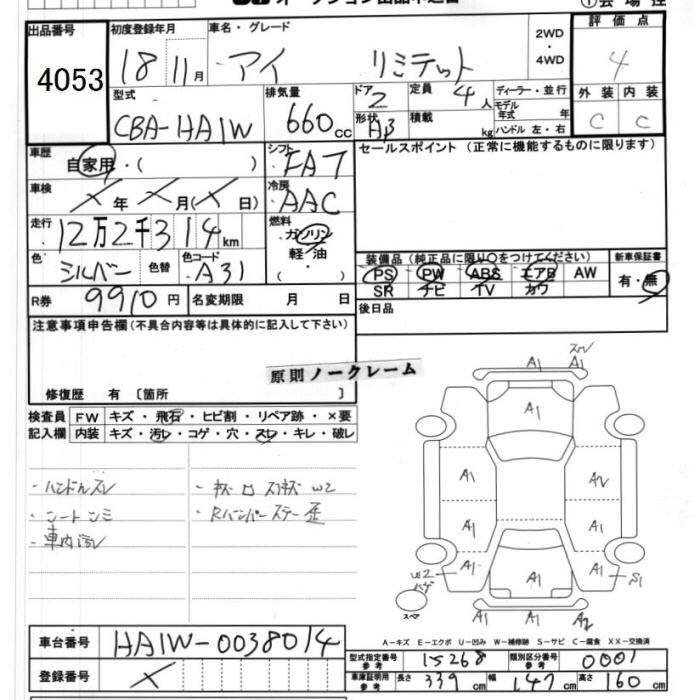 ①会場控
出品番号 4053
初度登録年月 18 11月
車名・グレード アイ リミテット
2WD・4WD
評価点 4
外装 C 内装 C
型式 CBA-HA1W
排気量 660cc
ドア 2 定員 4人
形状 積載 kg
ディーラー・並行
モデル年式 年
ハンドル 左・右
車歴 自家用・( )
シフト FAT
セールスポイント (正常に機能するものに限ります)
車検 X年 X月(X日)
冷房 AAC
走行 12万2千314km
燃料 ガソリン 軽油 ・( )
色 シルバー 色替 色コード A31
装備品 (純正品に限り○をつけてください) 新車保証書
PS PW ABS エアB AW 有・無
SR ナビ TV カワ
R券 9910円 名変期限 月 日
後日品
注意事項申告欄(不具合内容等は具体的に記入して下さい)
原則ノークレーム
修復歴 有 〔箇所 〕
検査員 FW キズ・飛石・ヒビ割・リペア跡・×要
記入欄 内装 キズ・汚レ・コゲ・穴・スレ・キレ・破レ
A1 A1
A1
A1 A2
A1 A1
A1 A1 A1 S1
W2
A1 A1 A2
スペア
・ハンドルスレ
・車内汚レ
A-キズ E-エクボ U-凹み W-補修跡 S-サビ C-腐食 XX-交換済
車台番号 HA1W-0038014
登録番号 X
型式指定番号 参考 15268 類別区分番号 参考 0001
車庫証明用 参考 長さ 339cm 幅 147cm 高さ 160cm